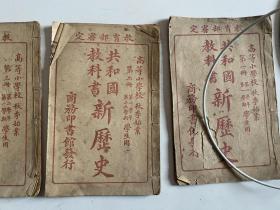 教育部審定
高等小學校秋季始業
第一冊
學生用
共和國
教科書
新歷史
商務印書館
教育部審定
高等小學校秋季始業
第二冊
學生用
共和國
教科書
新歷史
商務印書館發行
教
高等小學校秋季始業
第三冊
學生用